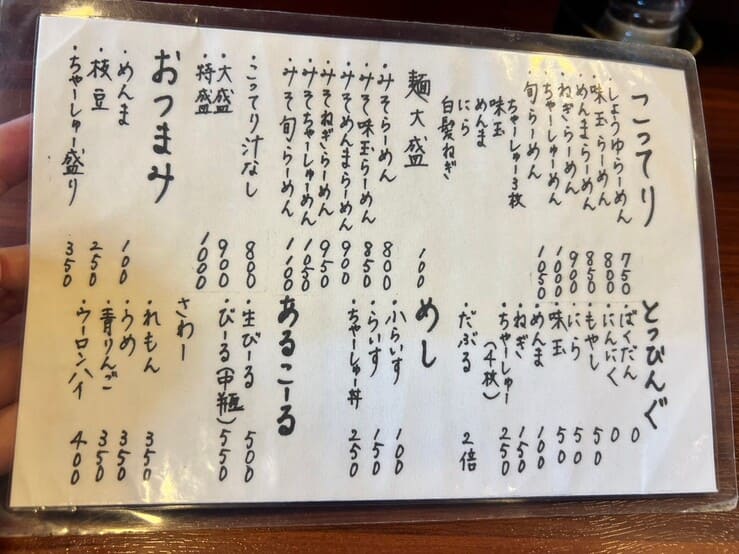 こってり
・しょうゆらーめん 750
・味玉らーめん 800
・めんまらーめん 850
・ねぎらーめん 900
・ちゃーしゅーめん 1000
・旬らーめん 1050
ちゃーしゅー3枚
味玉
めんま
にら
白髪ねぎ
麺大盛 100
・みそらーめん 800
・みそ味玉らーめん 850
・みそめんまらーめん 900
・みそねぎらーめん 950
・みそちゃーしゅーめん 1050
・みそ旬らーめん 1100
・こってり汁なし 800
・大盛 900
・特盛 1000
おつまみ
・めんま 100
・枝豆 250
・ちゃーしゅー盛り 350
とっぴんぐ
・ばくだん 0
・にんにく 0
・もやし 50
・にら 50
・味玉 50
・めんま 100
・ねぎ 150
・ちゃーしゅー(4枚) 250
・だぶる 2倍
めし
・小らいす 100
・らいす 150
・ちゃーしゅー丼 250
あるこーる
・生びーる 500
・びーる(中瓶) 550
さわー
・れもん 350
・うめ 350
・青りんご 350
・ウーロンハイ 400